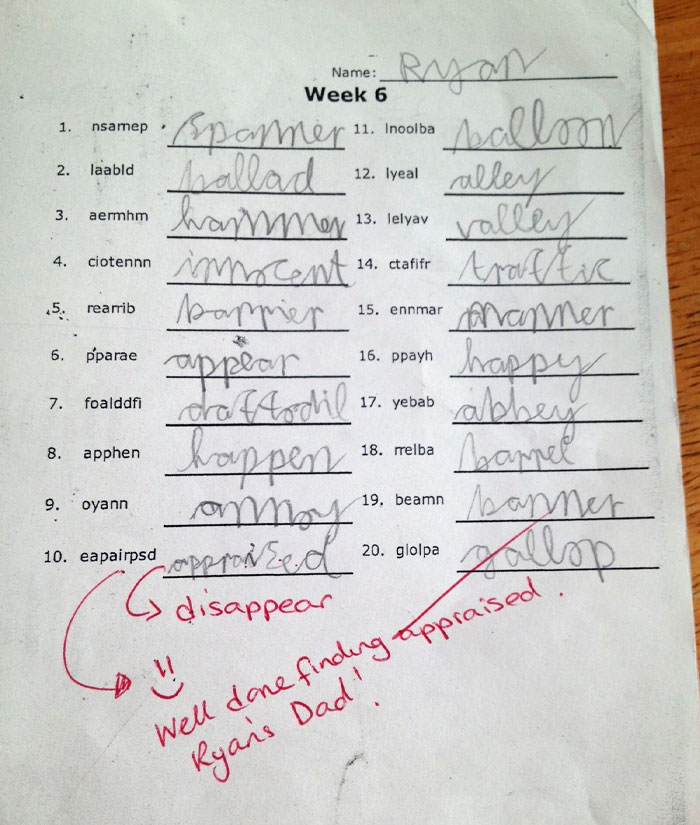 Name: Ryan
Week 6
1. nsarnep spanner
2. laabld ballad
3. aermhm hammer
4. ciotennn innocent
5. rearrib barrier
6. p'parae appear
7. foalddfi daffodil
8. apphen happen
9. oyann annoy
10. eapairpsd appraised
11. lnoolba balloon
12. lyeal alley
13. lelyav valley
14. ctafifr traffic
15. ennmar manner
16. ppayh happy
17. yebab abbey
18. rrelba barrel
19. beamn banner
20. glolpa gallop
disappear
Well done finding appraised.
Ryan's Dad!